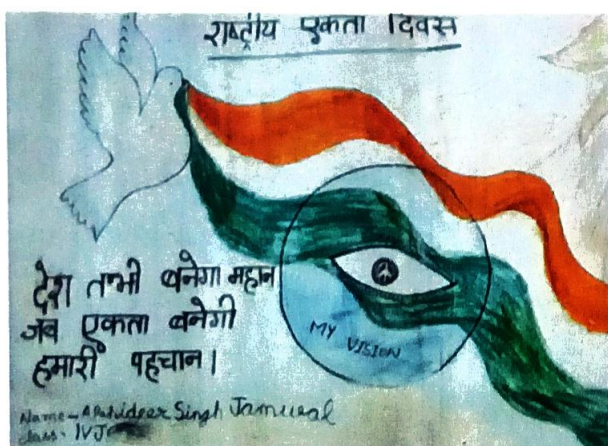 राष्ट्रीय एकता दिवस
देश तभी बनेगा महान
जब एकता बनेगी
हमारी पहचान।
MY VISION
Name - Singh Jamwal
class - IV J